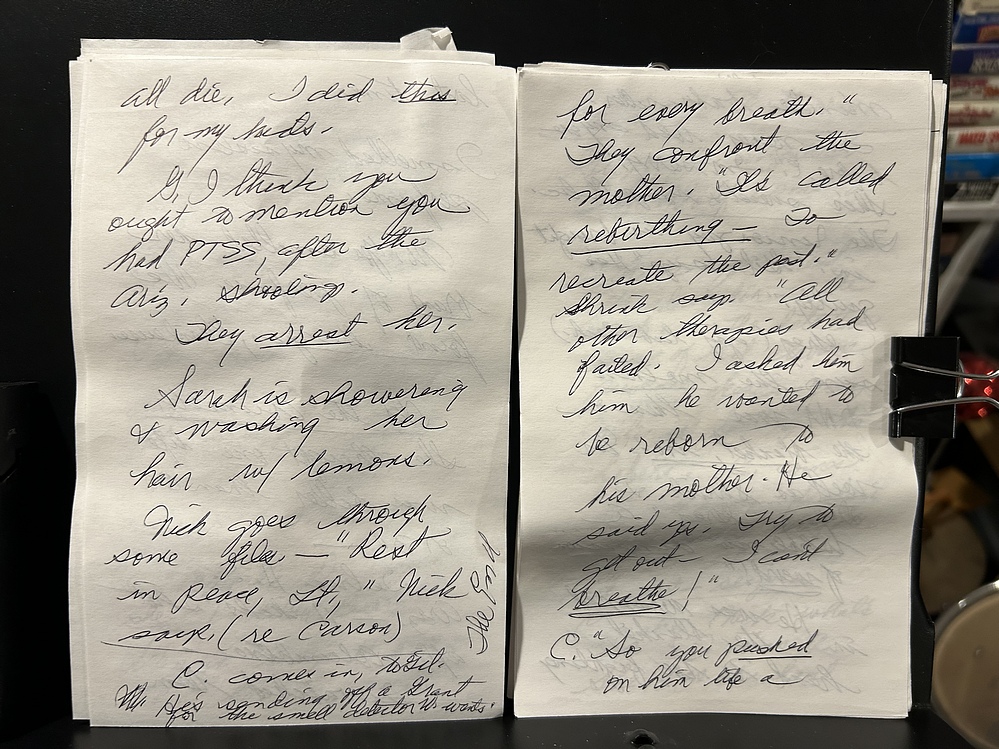 all die. I did this
for my kids.
G, I think you
ought to mention you
had PTSS, after the
Ariz. shooting.
They arrest her.
Sarah is showering
& washing her
hair w/ lemons.
Nick goes through
some files — "Rest
in peace, Lt," Nick
says, (re Carson)
C. comes in, to Gil.
He's sending off a Grant
for the smell detector he wants.
The End
for every breath."
They confront the
mother. "Its called
rebirthing — To
recreate the past."
Shrink says "All
other therapies had
failed. I asked him
him he wanted to
be reborn to
his mother. He
said yes. Try to
get out — I can't
breathe!"
C. "So you pushed
on him like a